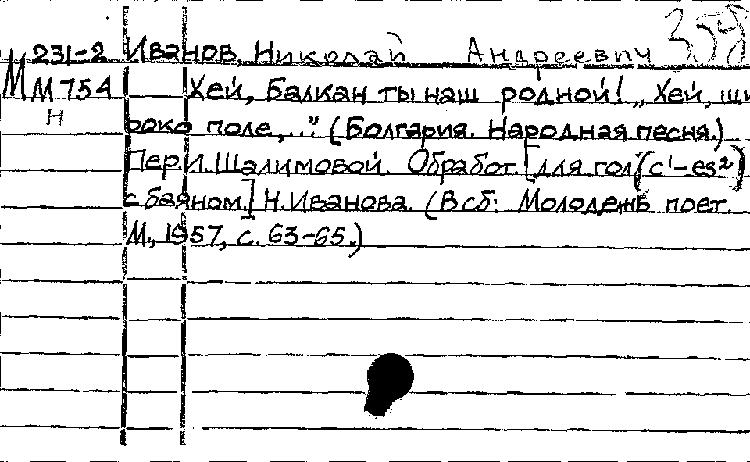 М 231-2 Иванов, Николай Андреевич 359
М 754 Хей, Балкан ты наш родной! „Хей, ши
Н роко поле,..." (Болгария. Народная песня.)
Пер. И. Шалимовой. Обработ. [для гол. (c¹-es²)
с баяном] Н. Иванова. (В сб: Молодежь поет.
М., 1957, с. 63-65.)